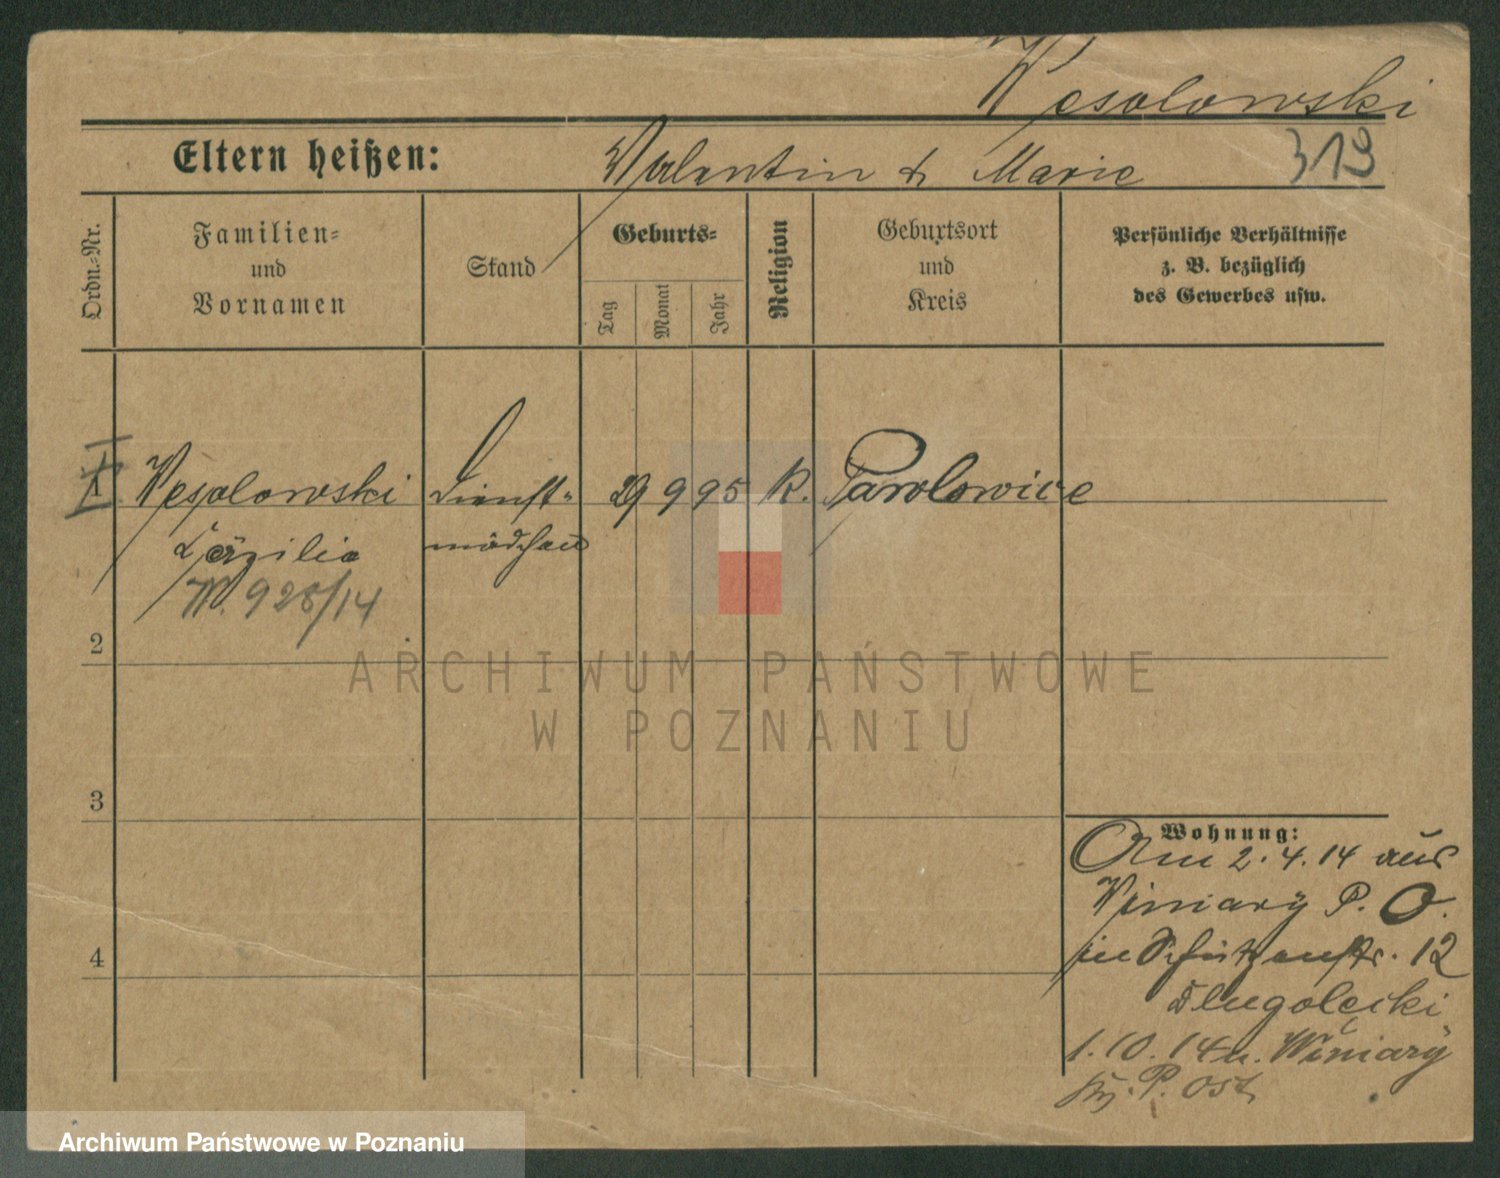 Wesolowski
Eltern heißen: Valentin & Marie 319
Ordn.-Nr.
Familien-
und
Vornamen
Stand
Geburts-
Tag
Monat
Jahr
Religion
Geburtsort
und
Kreis
Persönliche Verhältnisse
z. B. bezüglich
des Gewerbes usw.
1 Wesolowski Dienst- 29 9 95 K. Pawlowice
Cäzilia mädchen
W. 928/14
2
3
4
ARCHIWUM PAŃSTWOWE
W POZNANIU
Wohnung:
Am 2.4.14 aus
Winiary P. O.
in Schützenstr. 12
Dlugolęcki
1.10.14 n. Winiary
P. Ost
Archiwum Państwowe w Poznaniu